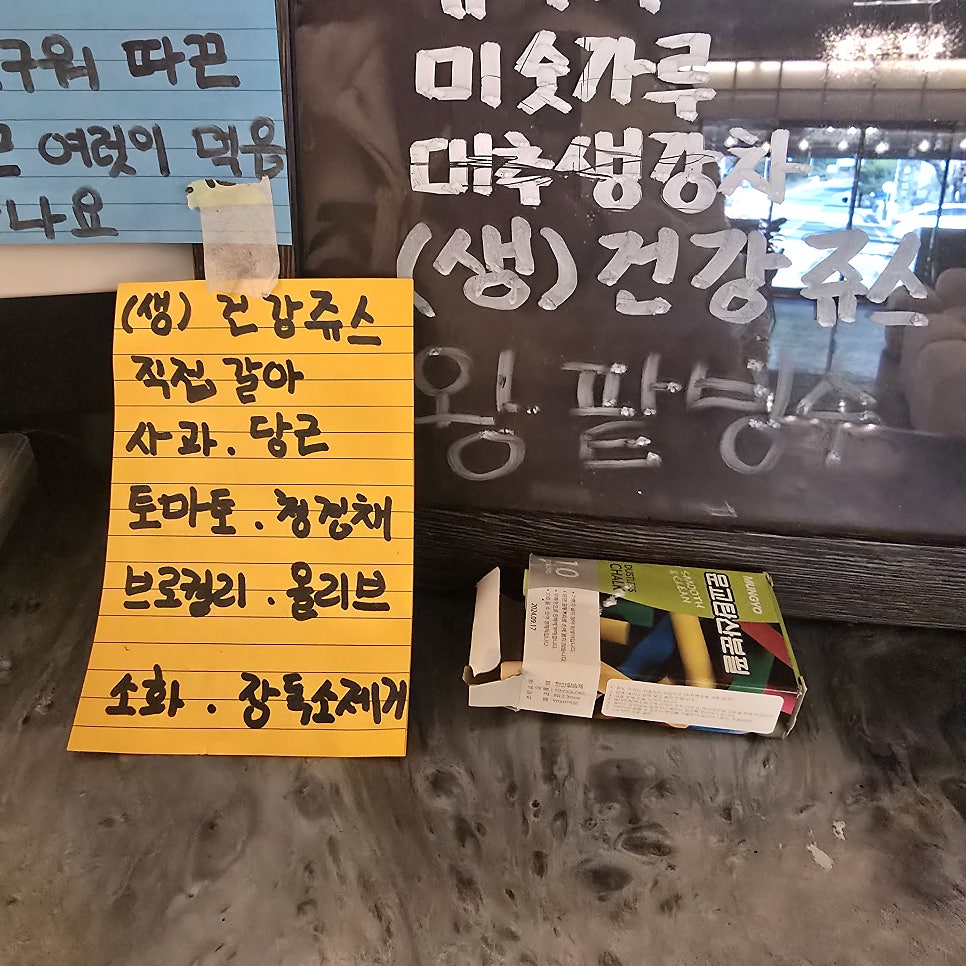 구워 따끈
여럿이 먹음
나요
미숫가루
대추생강차
(생) 건강쥬스
왕 팥빙수
(생) 건강쥬스
직접 갈아
사과 . 당근
토마토 . 청경채
브로컬리 . 올리브
소화 . 장독소제거
10
DUSTLESS
CHALK
SMOOTH
& CLEAN
MUNGYO
문교탄산분필
2024.09.17